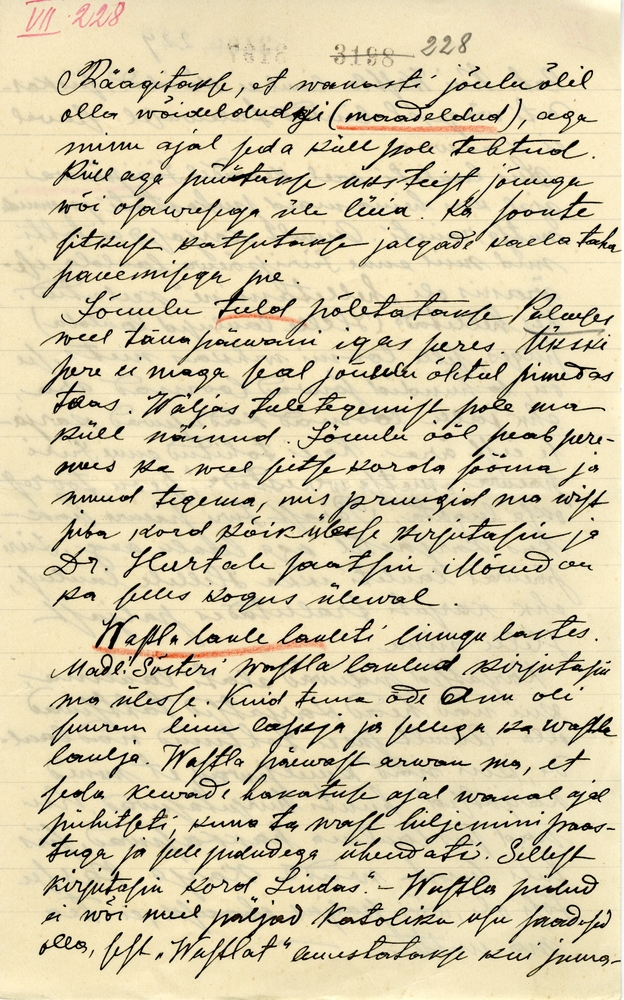 VII 228
7818 3198 228
Räägitakse, et wanasti jõuluõlil
olla wõideldudgi (maadeldud), aga
minu ajal seda küll pole tehtud.
Küll aga püütakse üksteist jõuuga
wõi osawusega üle lüüa. Ka soonte
sitkust katsutakse jalgade kaela taha
panemisega jne.
Jõulu tuld põletatakse Puluses
weel tänapäewani igas peres. Ükski
pere ei maga seal jõulu õhtul pimedas
toas. Wäljas tuletegemist pole ma
küll näinud. Jõulu ööl peab pere-
mees ka weel seitse korda sööma ja
muud tegema, mis pruugid ma wist
juba kord kõik ülesse kirjutasin ja
Dr. Hurtale saatsin. Mõned on
ka selles kogus ülewal.
Wastla laule lauleti linugu lastes.
Madli Sõsteri wastla laulud kirjutasin
ma ülesse. Kuid tema õde Ann oli
suurem linu laskja ja sellega ka wastla
laulja. Wastla päewast arwan ma, et
seda kewade hakatuse ajal wanal ajal
pühitseti, kuna ta wast hiljemini paas-
tuga ja selle pidudega ühendati. Sellest
kirjutasin kord „Lindas“. – Wastla pidud
ei wõi meil päljad Katoliku usu saadused
olla, sest „Wastlat“ austatakse kui juma-